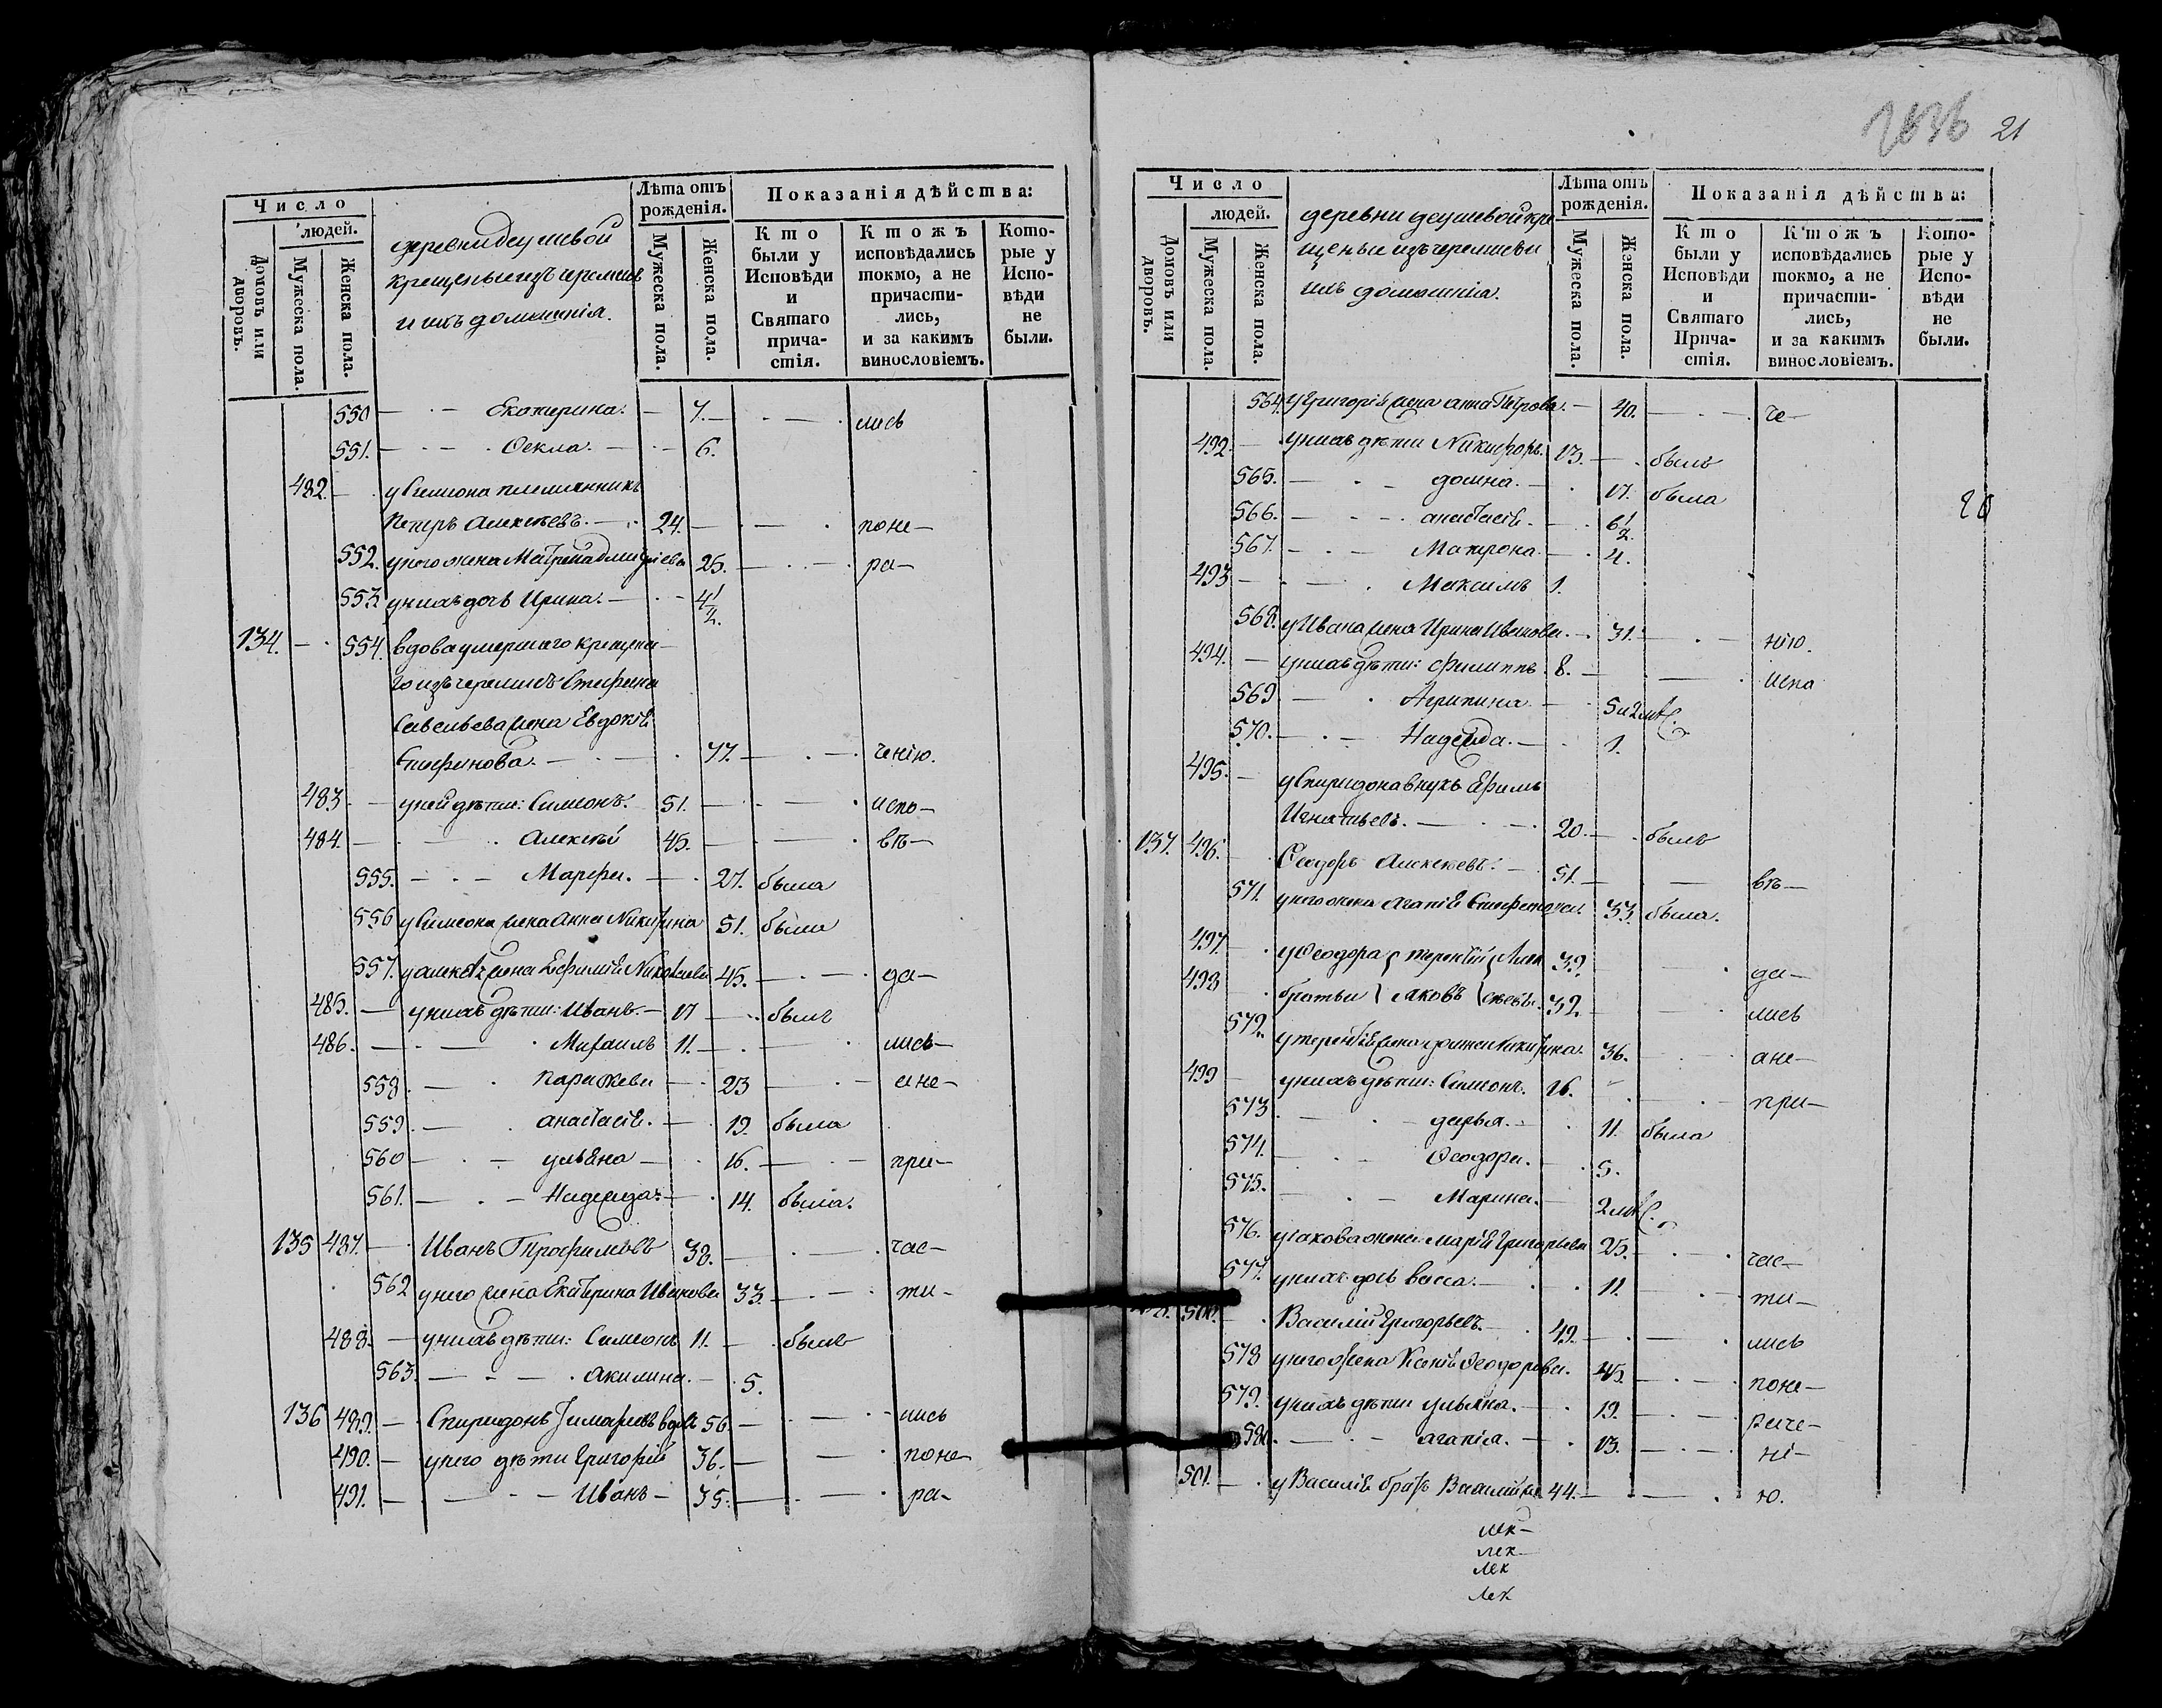 2636 21
Число
людей.
Домовъ или дворовъ.
Мужеска пола.
Женска пола.
деревни деушевой
крещеные изъ черемисъ
и ихъ домашнiя.
Лѣта отъ рожденiя.
Мужеска пола.
Женска пола.
Показанiя дѣйства:
Кто были у Исповѣди и Святаго причастiя.
Ктожъ исповѣдались токмо, а не причастились, и за какимъ винословiемъ.
Которые у Исповѣди не были.
550 — Екатерина. — 7. — лись
551. — Ѳекла. — 6.
482. — у Симеона племянникъ
Петръ Алексѣевъ. — 24. — поне—
552. у него жена Матрена 25. — ра—
553 у нихъ дочь Ирина. — 4 1/2.
134. — 554. вдова умершаго крещена—
го изъ черемисъ Стефана
Савельева жена Евдокiя
Стефанова. — 77. — ченiю.
483. — у ней дѣти: Симеонъ. 51. — испо—
484. — Алексѣй 45. — вѣ—
555. — Марфа. — 27. была
556 у Симеона жена Анна Никитина 51. была
557. у Алексѣя жена Евфимiя Николаева 45. — да—
485. — у нихъ дѣти: Иванъ. — 17 — былъ
486. — Михаилъ 11. — лись—
558. — Параскева — 23 — а не—
559. — анастасiя. — 19. была
560 — ульяна — 16. — при—
561. — Надежда. — 14. была.
135 487. — Иванъ Трофимовъ 38. — час—
562 у него жена Екатерина Иванова 33. — ти—
488. — у нихъ дѣти: Симеонъ 11. — былъ
563. — акилина. — 5.
136 489. — Спиридонъ вдовъ 56. — лись
490. — у него дѣти Григорiй 36. — поне—
491. — Иванъ — 35. — ра—
Число
людей.
Домовъ или дворовъ.
Мужеска пола.
Женска пола.
деревни деушевой кре
щеные изъ черемисъ и
ихъ домашнiя.
Лѣта отъ рожденiя.
Мужеска пола.
Женска пола.
Показанiя дѣйства:
Кто были у Исповѣди и Святаго Причастiя.
Ктожъ исповѣдались токмо, а не причастились, и за какимъ винословiемъ.
Которые у Исповѣди не были.
564. у Григорiя жена анна Петрова. — 40. — че—
492. — у нихъ дѣти Никифоръ. 13. — былъ
565. — домна. — 17. была
20
566. — анастасiя. — 6 1/2.
567. — Матрона. — 4.
493 — Максимъ 1.
568. у Ивана жена Ирина Иванова. — 31. — нiю.
494. — у нихъ дѣти: Филиппъ. 8. — испо
569 — Агрипина. — 5 и 2 мѣс.
570. — Надежда. — 1.
495. — у Спиридона внукъ Ефимъ
Игнатьевъ. — 20. — былъ
137. 496. — Ѳеодоръ Алексѣевъ. — 51. — вѣ—
571. у него жена Агапiя Стефанова. 33. была.
497 — у Ѳеодора терентiй Алек 39. — да—
498 — братья яковъ сѣевы. 32. — лись
572. у терентiя жена Никитина. 36. — а не—
499 — у нихъ дѣти: Симеонъ. 16. — при—
573 — дарья. — 11. была
574. — Ѳеодора. — 5.
575. — Марина. — 2 мѣс.
576. у якова жена марiя Григорьева 25. — час—
577. у нихъ дочь васса. — 11. — ти—
500. — Василiй Григорьевъ. — 49. — лись
578 у него жена Ксенiя Ѳеодорова. 45. — поне—
579. у нихъ дѣти ульяна. — 19. — раче—
580. — агапiя. — 13. — нi—
501. — у Василiя братъ Василiй 44. — ю.
лек—
лек—
лек
лек